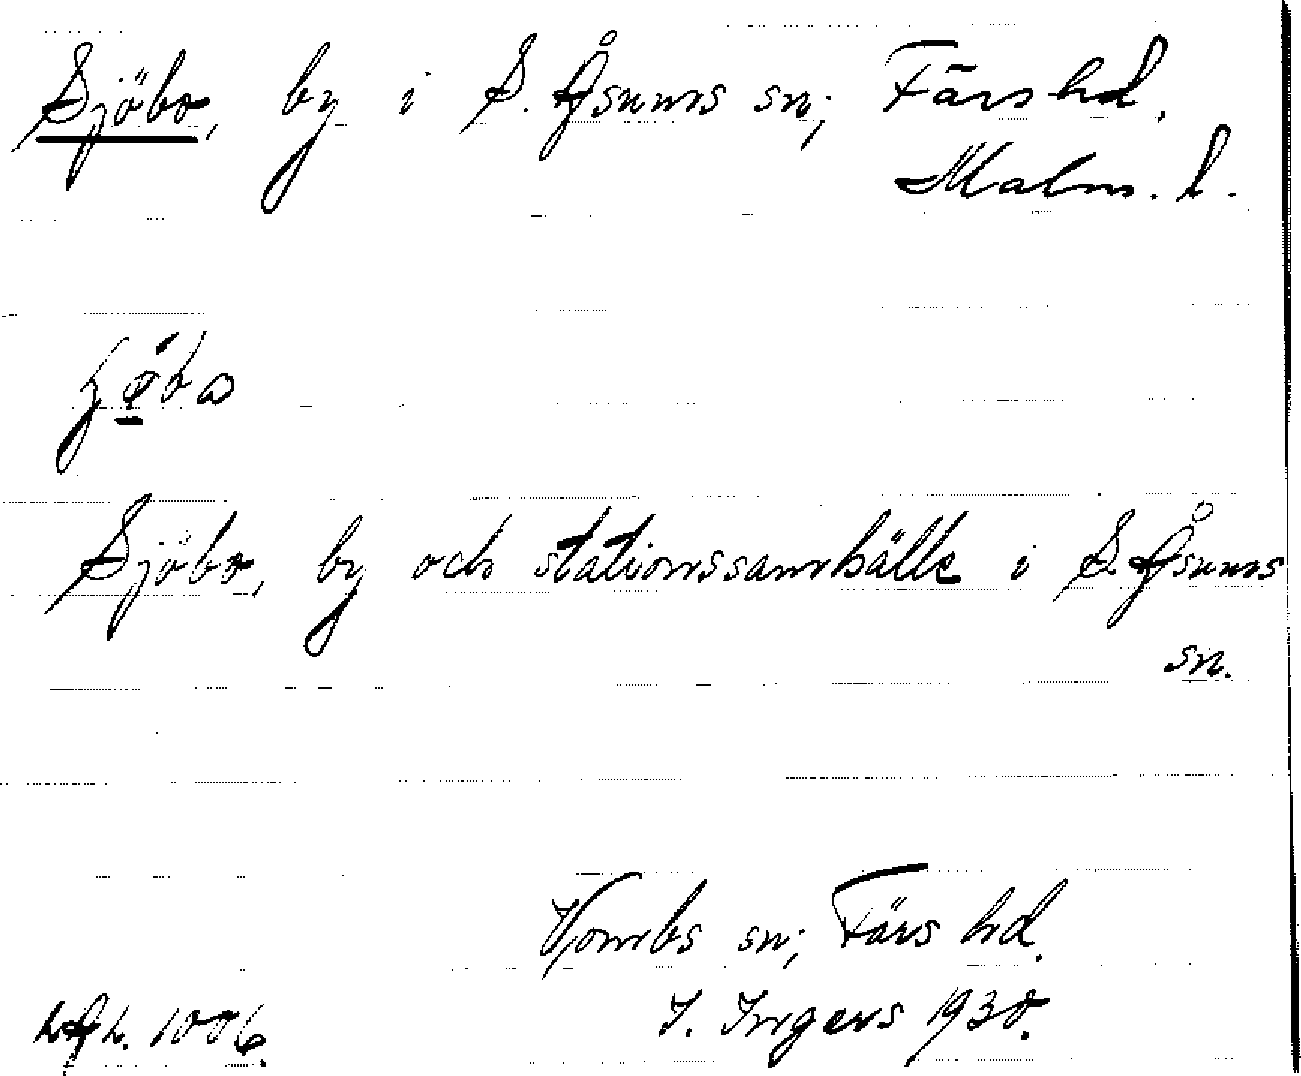 Sjöbo, by i S. Åsums sn; Färs hd.
Malm. l.
Sjöbo, by och stationssamhälle i S. Åsums
sn.
Vombs sn; Färs hd.
I. Ingers 1930.
1006.